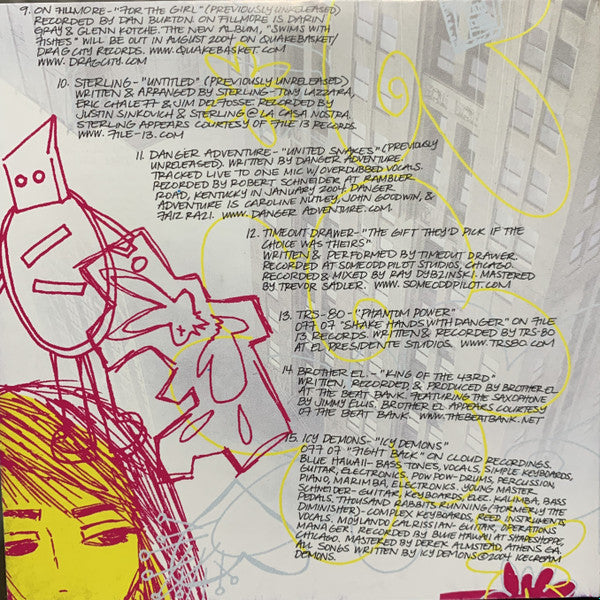 9. ON FILLMORE - "FOR THE GIRL" (PREVIOUSLY UNRELEASED)
RECORDED BY DAN BURTON. ON FILLMORE IS DARIN
GRAY & GLENN KOTCHE. THE NEW ALBUM, "SWIMS WITH
FISHES" WILL BE OUT IN AUGUST 2004 ON QUAKEBASKET/
DRAG CITY RECORDS. WWW.QUAKEBASKET.COM
WWW.DRAGCITY.COM
10. STERLING - "UNTITLED" (PREVIOUSLY UNRELEASED)
WRITTEN & ARRANGED BY STERLING - TONY LAZZARA,
ERIC CHALEFF & JIM DELFOSSE. RECORDED BY
JUSTIN SINKOVICH & STERLING @ LA CASA NOSTRA.
STERLING APPEARS COURTESY OF FILE 13 RECORDS.
WWW.FILE-13.COM
11. DANGER ADVENTURE - "UNITED SNAKES" (PREVIOUSLY
UNRELEASED). WRITTEN BY DANGER ADVENTURE.
TRACKED LIVE TO ONE MIC W/OVERDUBBED VOCALS.
RECORDED BY ROBERT SCHNEIDER AT RAMBLER
ROAD, KENTUCKY IN JANUARY 2004. DANGER
ADVENTURE IS CAROLINE NUTLEY, JOHN GOODWIN, &
FAIZ RAZI. WWW.DANGER ADVENTURE.COM.
12. TIMEOUT DRAWER - "THE GIFT THEY'D PICK IF THE
CHOICE WAS THEIRS"
WRITTEN & PERFORMED BY TIMEOUT DRAWER.
RECORDED AT SOMEODDPILOT STUDIOS, CHICAGO.
RECORDED & MIXED BY RAY DYBZINSKI. MASTERED
BY TREVOR SADLER. WWW.SOMEODDPILOT.COM
13. TRS-80 - "PHANTOM POWER"
OFF OF "SHAKE HANDS WITH DANGER" ON FILE
13 RECORDS. WRITTEN & RECORDED BY TRS-80
AT EL PRESIDENTE STUDIOS. WWW.TRS80.COM
14. BROTHER EL. - "KING OF THE 43RD"
WRITTEN, RECORDED, & PRODUCED BY BROTHER EL
AT THE BEAT BANK. FEATURING THE SAXOPHONE
BY JIMMY ELLIS. BROTHER EL APPEARS COURTESY
OF THE BEAT BANK. WWW.THEBEATBANK.NET
15. ICY DEMONS - "ICY DEMONS"
OFF OF "FIGHT BACK" ON CLOUD RECORDINGS.
BLUE HAWAII - BASS TONES, VOCALS, SIMPLE KEYBOARDS,
GUITAR, ELECTRONICS. POW POW - DRUMS, PERCUSSION
PIANO, MARIMBA, ELECTRONICS. YOUNG MASTER
SCHNEIDER - GUITAR, KEYBOARDS, ELEC. KALIMBA, BASS
PEDALS, THOUSAND RABBITS RUNNING (FORMERLY THE
DIMINISHER) - COMPLEX KEYBOARDS, REED INSTRUMENTS
VOCALS. MOYLANDO CALRISSIAN - GUITAR, OPERATIONS
MANAGER. RECORDED BY BLUE HAWAII AT SHAPESHOPPE,
CHICAGO. MASTERED BY DEREK ALMSTEAD, ATHENS GA.
ALL SONGS WRITTEN BY ICY DEMONS © 2004 ICECREAM
DEMONS.